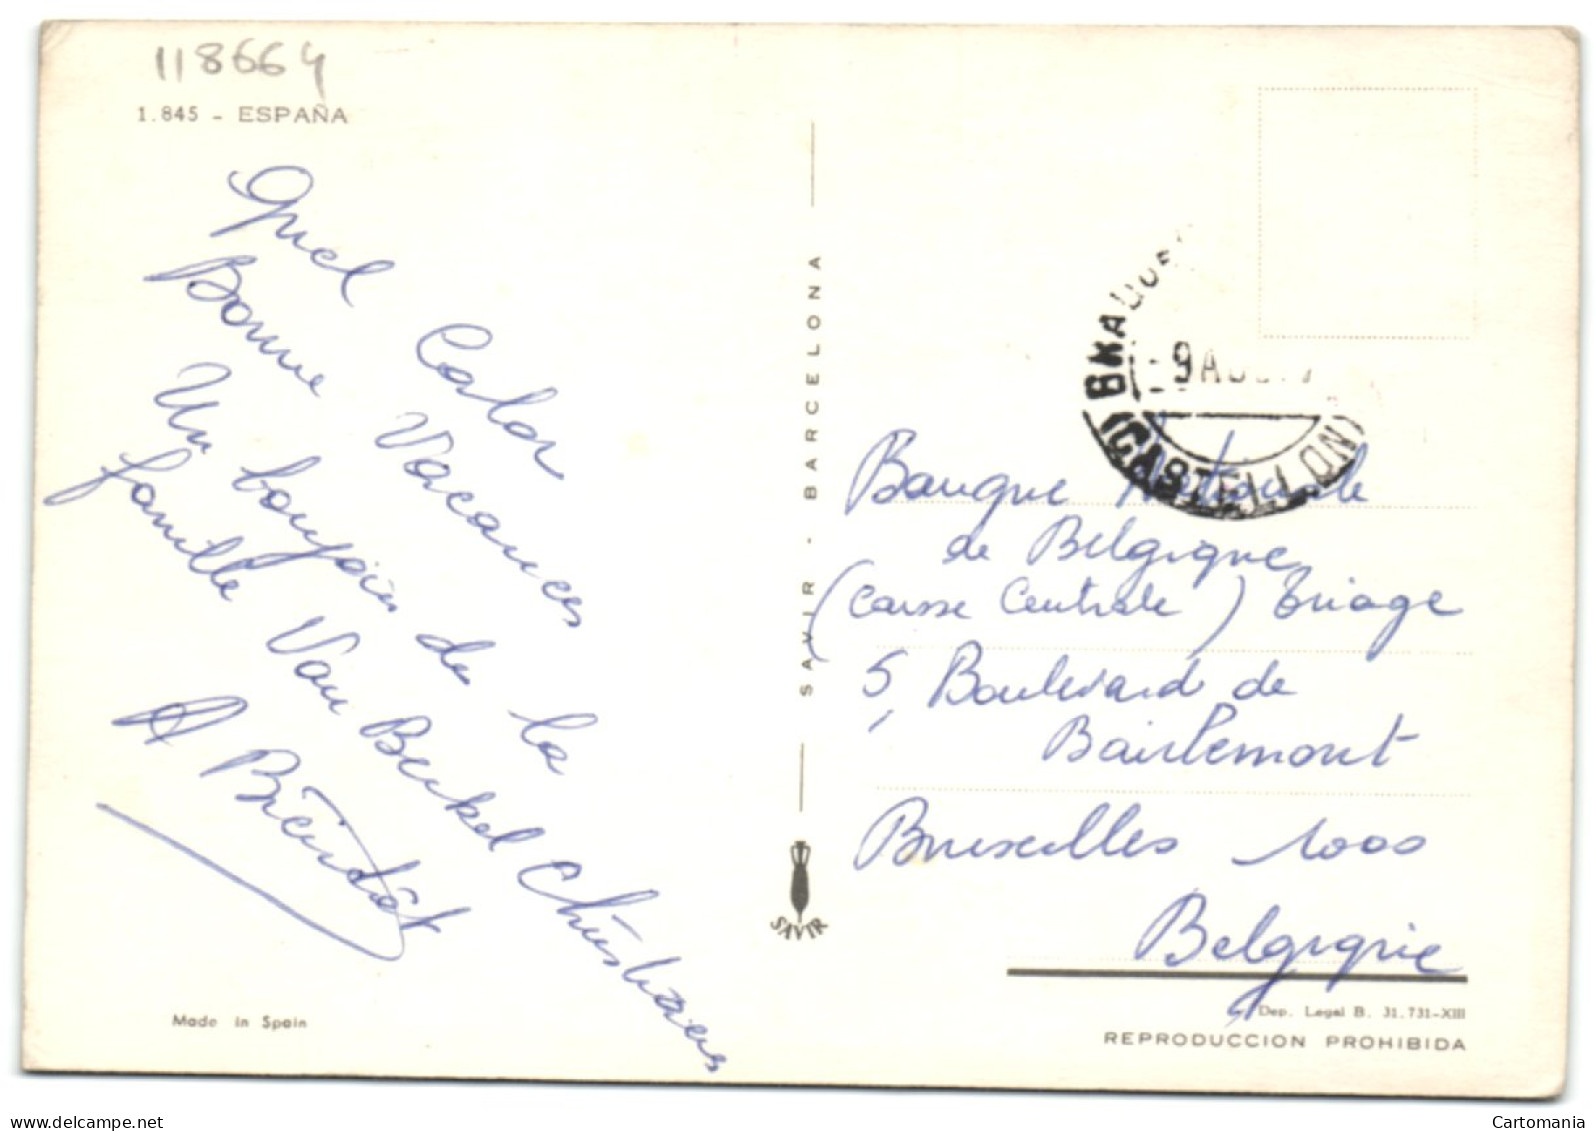 118664
1.845 - ESPAÑA
Quel Calor
Bonne Vacances
Un bonjour de la
famille Van Berkel Christiaens
A
SAVIR - BARCELONA
SAVIR
9 A
(CASTELLON)
Banque Nationale
de Belgique
(Caisse Centrale) Triage
5, Boulevard de
Bruxelles 1000
Belgique
Dep. Legal B. 31.731-XIII
REPRODUCCION PROHIBIDA
Made in Spain
delcampe.net
Cartomania